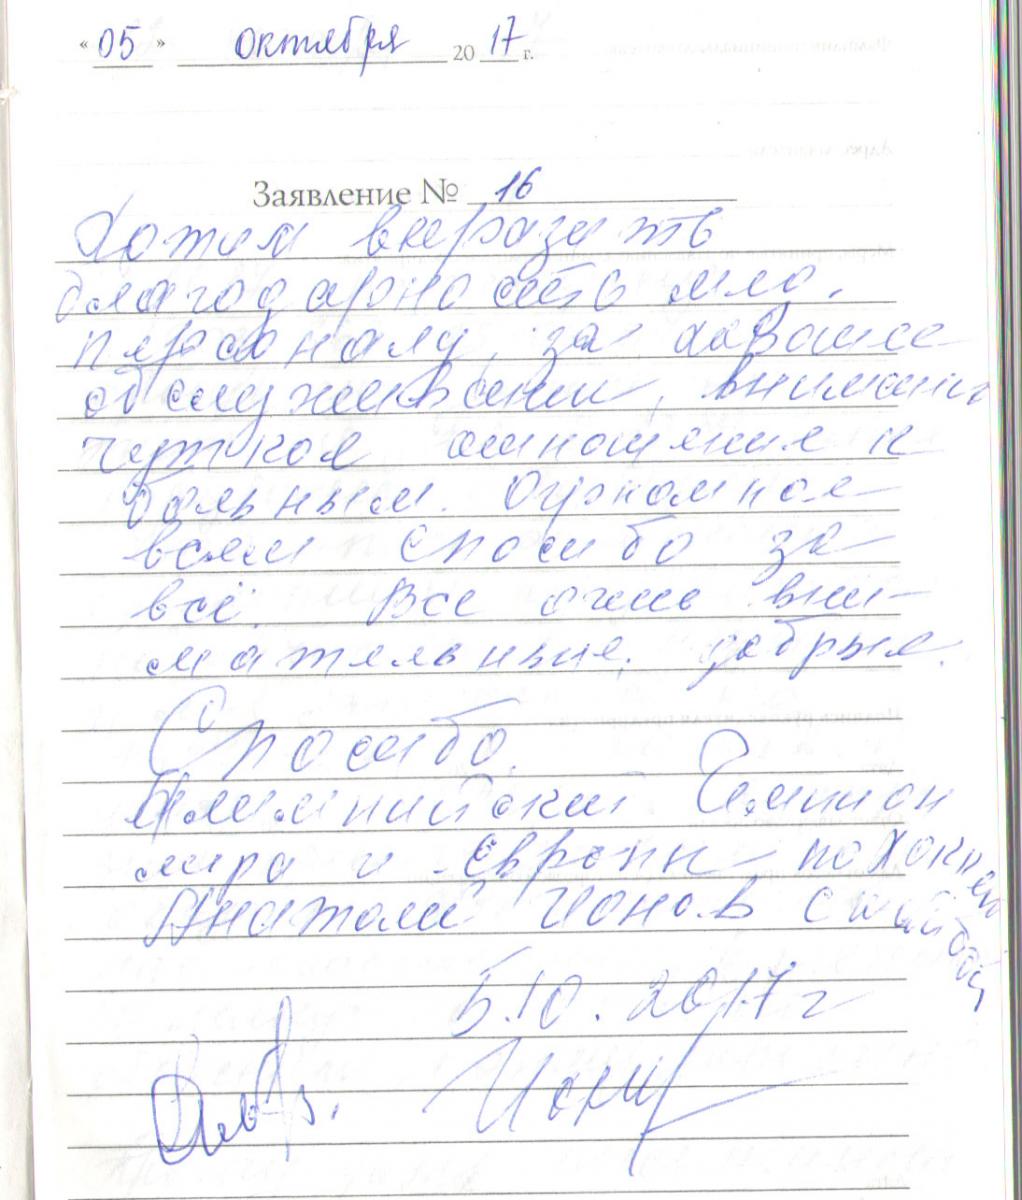 « 05 » октября 20 17 г.
Заявление № 16
Хотим выразить
благодарность мед.
персоналу, за хорошее
обслуживание, внимание
чуткое отношение к
больным. Огромное
всем спасибо за
всё. Все очень вни-
мательные, добрые.
Спасибо.
Олимпийский Чемпион
мира и Европы по хоккею
Анатолий Ионов с
5.10.2017 г